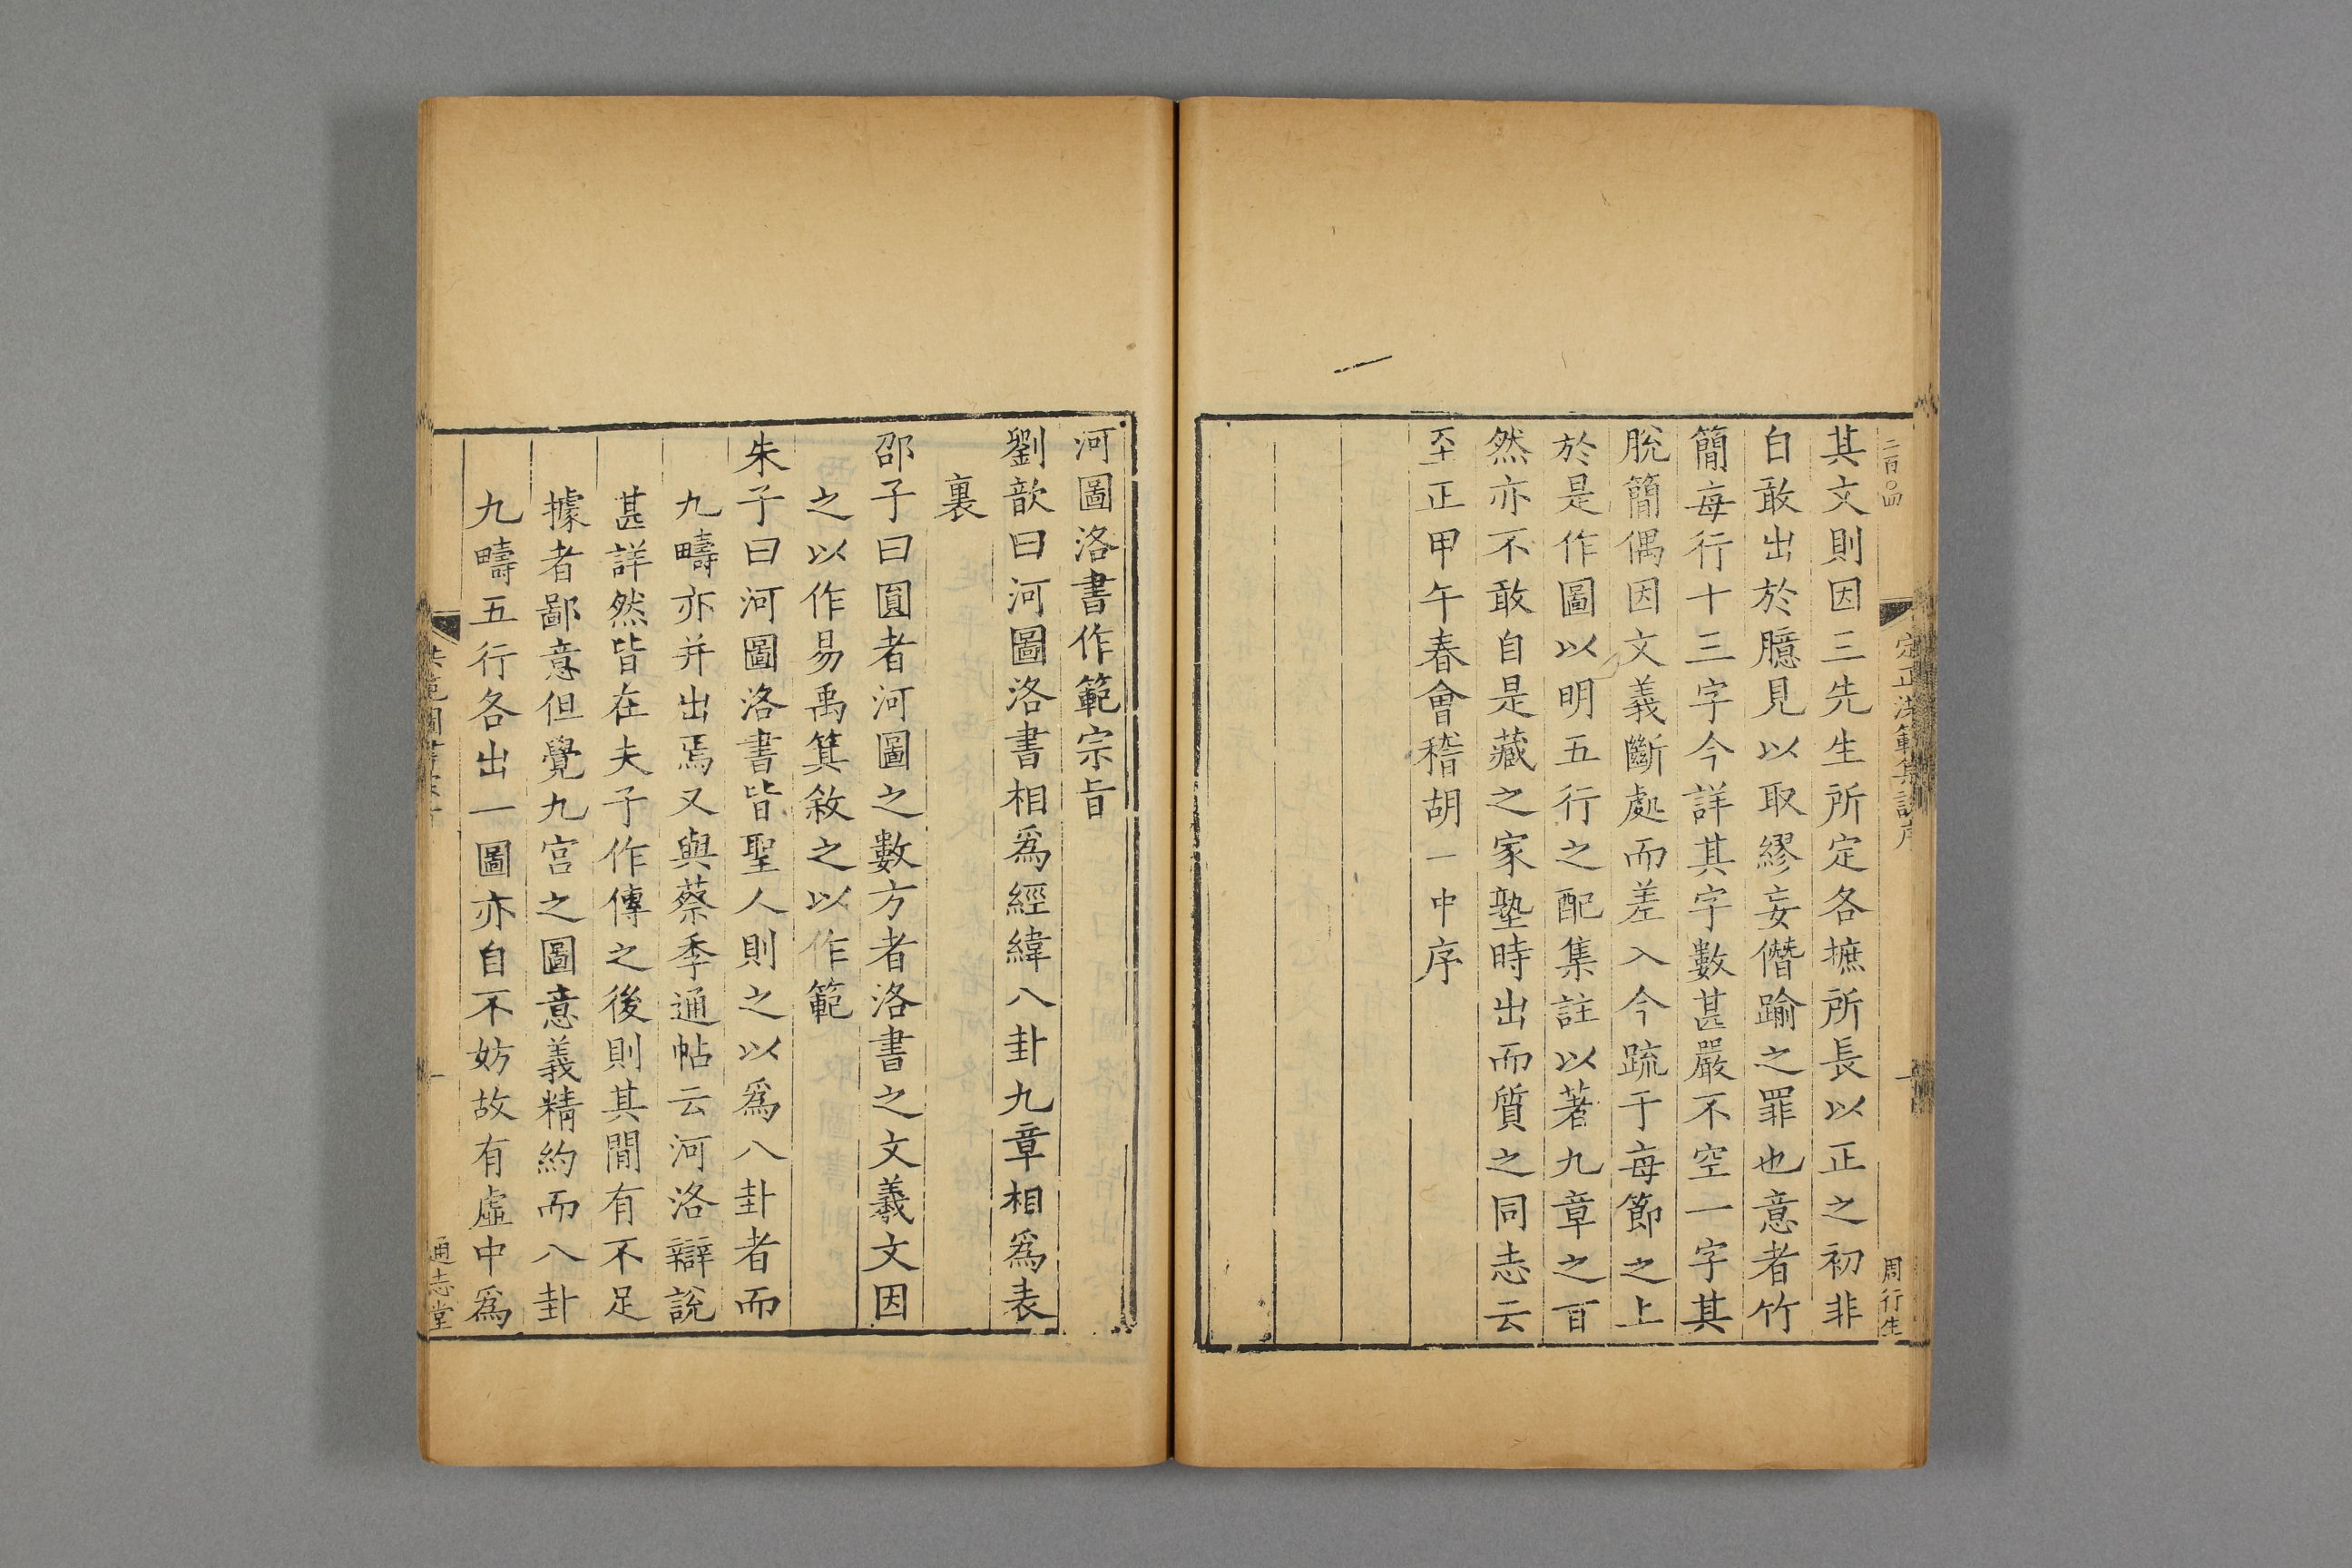 二百〇四
定正洪範集說序
一
周行生
其文則因三先生所定各摭所長以正之初非
白敢出於臆見以取繆妄僭踰之罪也意者竹
簡每行十三字今詳其字數甚嚴不空一字其
脫簡偶因文義斷處而差入今疏于每節之上
於是作圖以明五行之配集註以著九章之㫖
然亦不敢自是藏之家塾時出而質之同志云
至正甲午春會稽胡一中序
河圖洛書作範宗旨
劉歆曰河圖洛書相爲經緯八卦九章相爲表
裏
邵子曰圓者河圖之數方者洛書之文羲文因
之以作易禹箕敘之以作範
朱子曰河圖洛書皆聖人則之以爲八卦者而
九疇亦并出焉又與蔡季通帖云河洛辯說
甚詳然皆在夫子作傳之後則其間有不足
據者鄙意但覺九宮之圖意義精約而八卦
九疇五行各出一圖亦自不妨故有虛中爲
一
通志堂